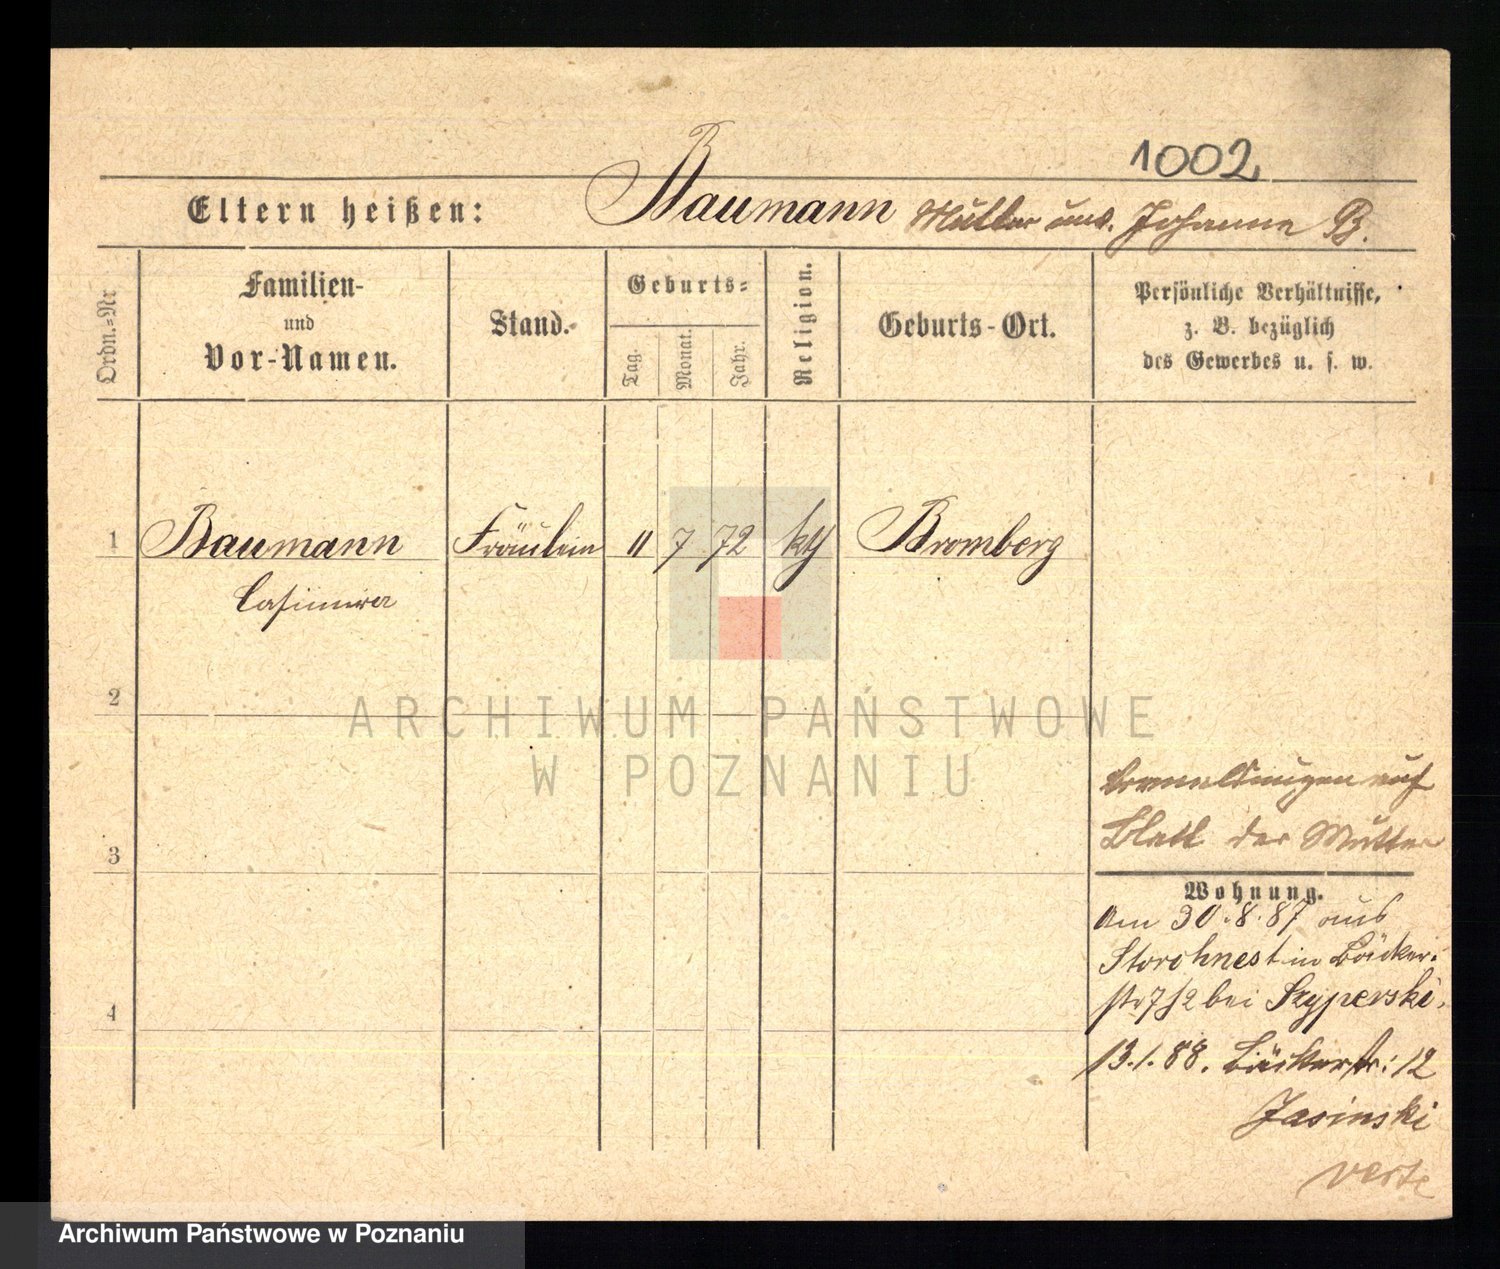 1002
Eltern heißen: Baumann Mutter unv. Johanna B.
Ordn.=Nr
Familien-
und
Vor-Namen.
Stand.
Geburts=
Tag.
Monat.
Jahr.
Religion.
Geburts-Ort.
Persönliche Verhältnisse,
z. B. bezüglich
des Gewerbes u. s. w.
1 Baumann Fräulein 11 7 72 kth Bromberg
Casimira
2
ARCHIWUM PAŃSTWOWE
W POZNANIU
auf
Blatt der Mutter
3
Wohnung.
Am 30.8.87 aus
Storchnest in Bäcker:
str 7/2 bei Szyperski.
4
13.1.88. Bäckerstr: 12
Jasinski
verte
Archiwum Państwowe w Poznaniu